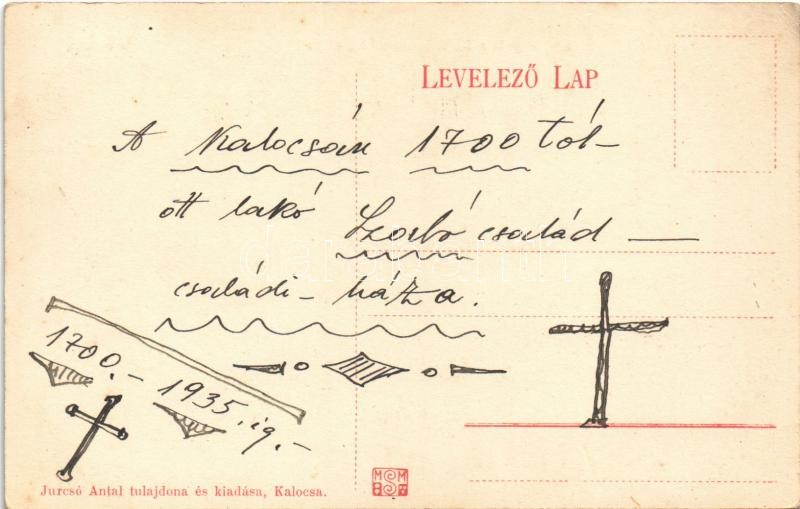 LEVELEZŐ LAP
A Kalocsán 1700 tól-
ott lakó Szabó család —
családi- háza.
1700.- 1935.ig.-
Jurcsó Antal tulajdona és kiadása, Kalocsa.